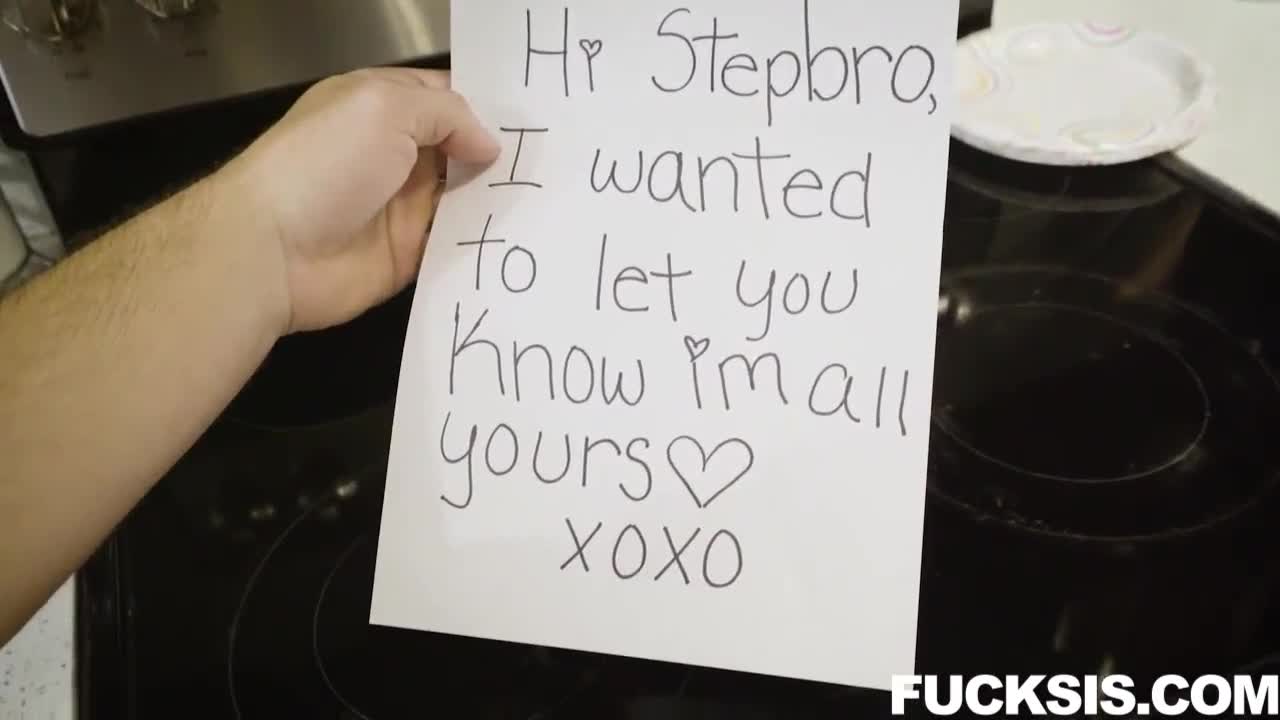 Hi Stepbro,
I wanted
to let you
Know im all
yours♡
xoxo
FUCKSIS.COM